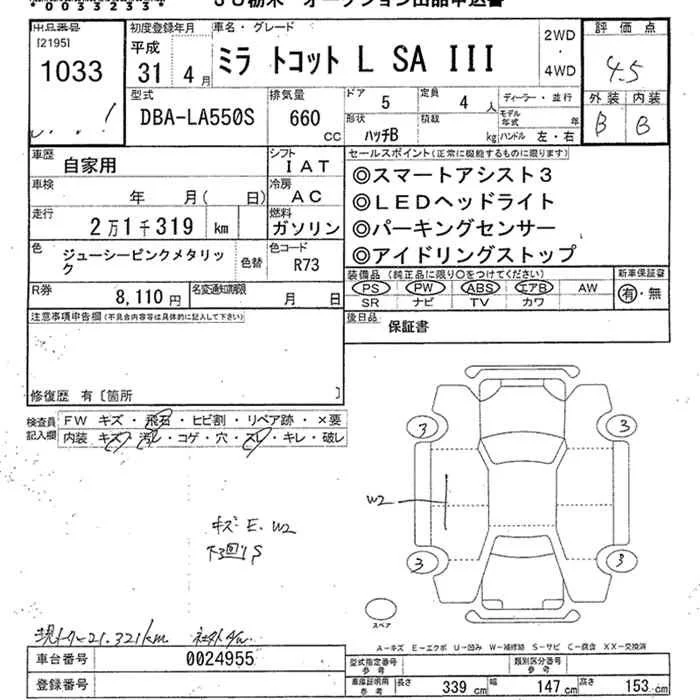 * 0 0 5 3 2 3 3 *
JU栃木 オークション出品申込書
出品番号
[2195]
1033
初度登録年月
平成
31年 4月
車名・グレード
ミラ トコット L SA III
2WD
・
4WD
評価点
4.5
外装 内装
B B
型式
DBA-LA550S
排気量
660
CC
ドア 5
定員 4 人
形状 ハッチB
積載 kg
ディーラー・並行
モデル年式 年
ハンドル 左・右
車歴 自家用
シフト IAT
車検 年 月( 日)
冷房 AC
走行 2万1千319 km
燃料 ガソリン
色 ジューシーピンクメタリック
色替
色コード R73
R券 8,110円
名変通知期限 月 日
セールスポイント(正常に機能するものに限ります)
◎スマートアシスト3
◎LEDヘッドライト
◎パーキングセンサー
◎アイドリングストップ
装備品(純正品に限り○をつけてください)
PS PW ABS エアB AW
SR ナビ TV カワ
新車保証書
有・無
後日品 保証書
注意事項申告欄(不具合内容等は具体的に記入して下さい)
修復歴 有〔箇所 〕
検査員記入欄
FW キズ・飛石・ヒビ割・リペア跡・×要
内装 キズ・汚レ・コゲ・穴・スレ・キレ・破レ
3 3
W2
3 3
キズ E. W2
下回りS
スペア
現トリ-21,321km
A-キズ E-エクボ U-凹み W-補修跡 S-サビ C-腐食 XX-交換済
車台番号 0024955
登録番号
型式指定番号 参考
類別区分番号 参考
車庫証明用 参考
長さ 339 cm
幅 147 cm
高さ 153 cm